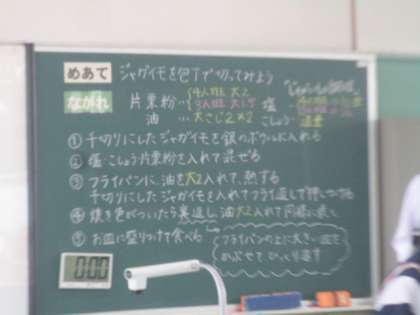 めあて ジャガイモを包丁で切ってみよう
ながれ 片栗粉… 4人班 大2
3人班 大1.5
油 大さじ2×2
塩…
こしょう…適量
① 千切りにしたジャガイモを銀のボウルに入れる
② 塩・こしょう・片栗粉を入れて混ぜる
③ フライパンに、油を大2入れて、熱する
千切りにしたジャガイモを入れてフライ返しで押しつける
④ 焼き色がついたら裏返し、油大2入れて同様に焼く
⑤ お皿に盛りつけて食べる
フライパンの上に大きい皿を
かぶせてひっくり返す
0:00